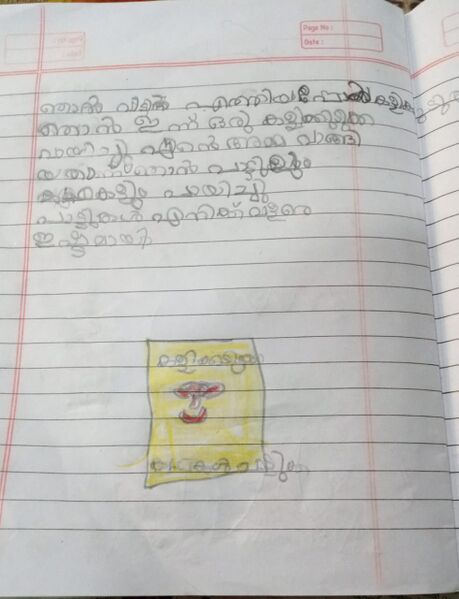 Page No :
Date :
ഞാൻ വീട്ടിൽ എത്തിയപ്പോൾ
ഞാൻ ഇന്ന് ഒരു കളിക്കുടുക്ക
വായിച്ചു എന്റെ അമ്മ വാങ്ങി
ഞാൻ പാട്ടുകളും
കഥകളും വായിച്ചു
പാട്ടുകൾ എനിക്ക് വളരെ
ഇഷ്ടമായി
കളിക്കുടുക്ക